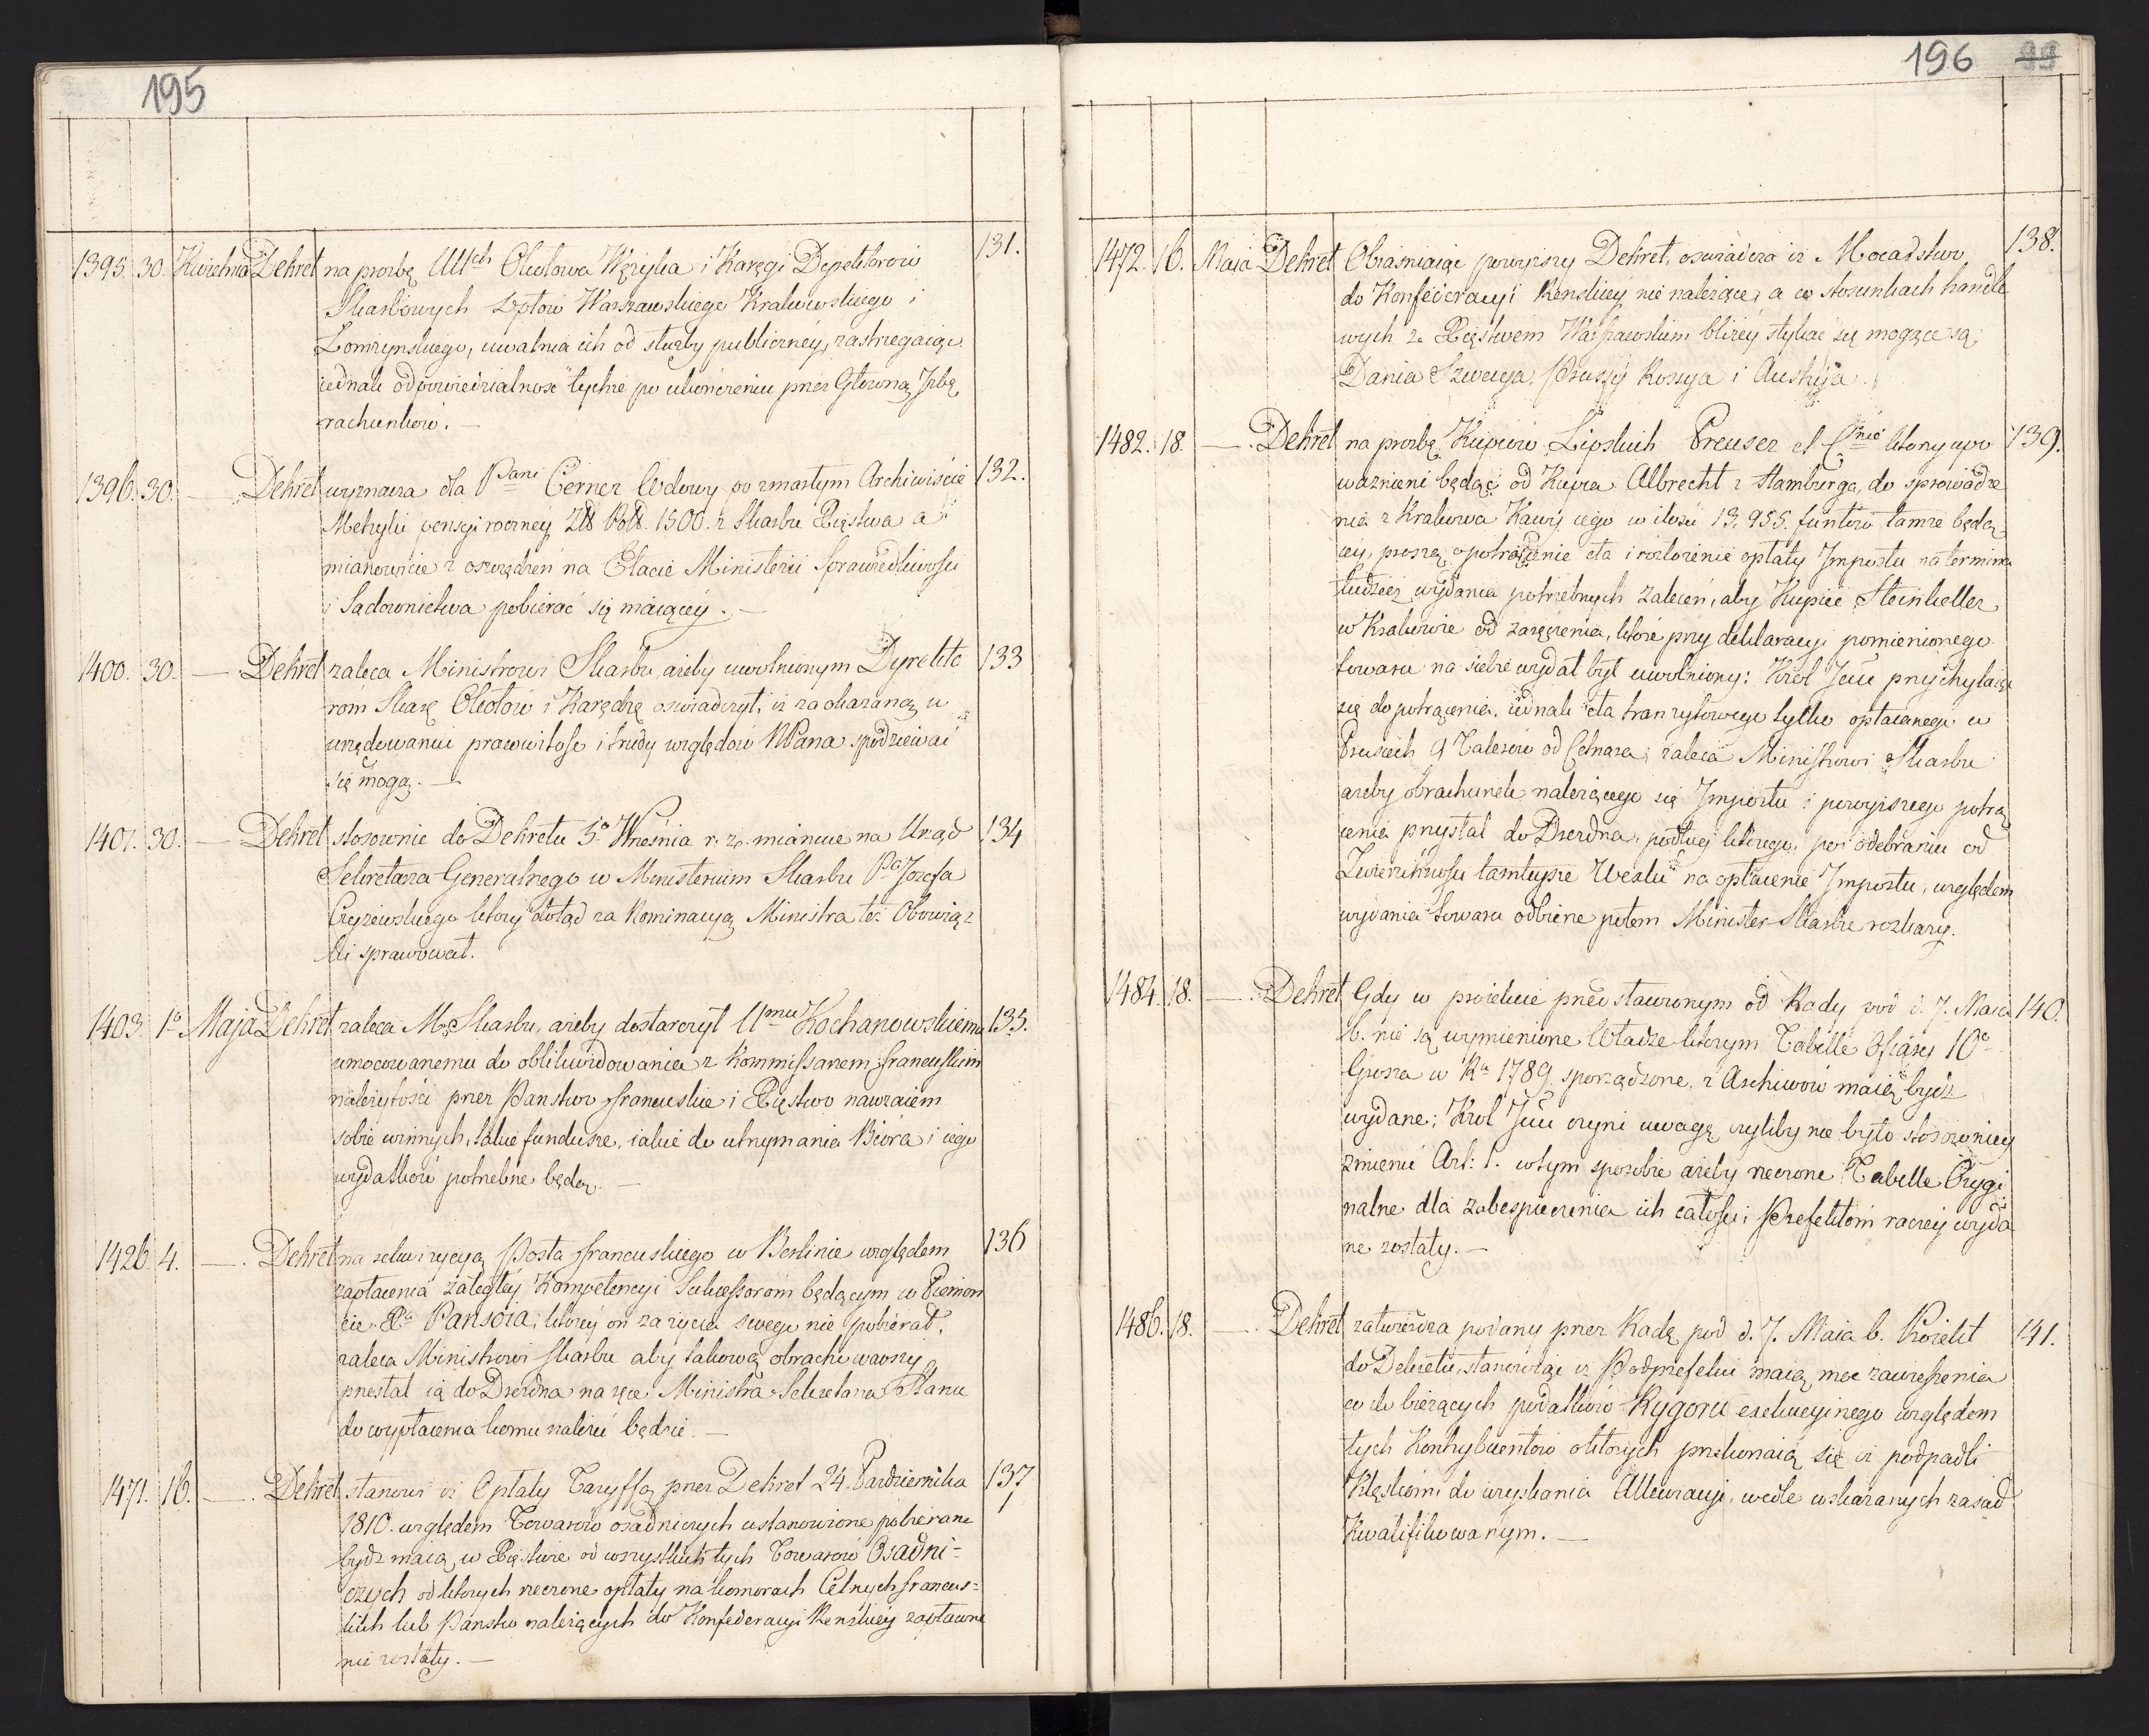 195
1395. 30. Kwietnia Dekret na prozbę UUch Okołowa Węzyka i Karęgi Dyrektorow 131.
Skarbowych Dptow Warszawskiego Krakowskiego i
Łomzynskiego, uwalnia ich od służby publiczney, zastrzegaiąc
iednak odpowiedzialność tychże po ukończeniu przez Głowną Jzbę
rachunkow. —
1396. 30. — Dekret wyznacza dla Pani Cerner Wdowy po zmarłym Archiwiście 132.
Metryki pensyi roczney Złł Poll. 1500. z Skarbu Xięstwa a
mianowicie z oszczędzeń na Etacie Ministerii Sprawiedliwości
i Sądownictwa pobierać się maiącey. —
1400. 30. — Dekret zaleca Ministrowi Skarbu, ażeby uwolnionym Dyrekto 133
róm Skarb. Okołow i Karęchę oswiadczył, iż za okazaną w
urzędowaniu prawowitość i trudy względow NPana spodziewać
się mogą. —
1401. 30. — Dekret stosownie do Dekretu 5o Wrzesnia r. z. mianuie na Urząd 134
Sekretarza Generalnego w Ministerium Skarbu Pa Jozefa
Czyżewskiego ktory dotąd za Nominacyą Ministra też Obowiąz
ki sprawował.
1403. 1o Maja Dekret zaleca M. Skarbu, ażeby dostarczył Umu Kochanowskiemu 135.
umocowanemu do oblikwidowania z Kommissarzem francuskim
należytości przez Panstwo francuskie i Xięstwo nawzaiem
sobie winnych, takie fundusze, iakie do utrzymania Biora i iego
wydatkow potrzebne będą. —
1426. 4. — Dekret na rekwizycyą Posła francuskiego w Berlinie względem 136
zapłacenia zaległey Kompetencyi Sukcessorom będącym w Piemon
cie Xa Pansoia, ktorey on za życia swego nie pobierał,
zaleca Ministrowi skarbu aby takową obrachowawszy
przesłał ią do Drezna na ręce Ministra Sekretarza Stanu
do wypłacenia komu należeć będzie. —
1471. 16. — Dekret stanowi iż Opłaty Taryffą przez Dekret 24. Pazdziernika 137
1810. względem Towarow osadniczych ustanowione pobierane
bydź maią w Xięstwie od wszystkich tych Towarow Osadni=
czych od ktorych rzeczone opłaty na komorach Celnych francus=
kich lub Panstw należących do Konfederacyi Renskiey zapłacone
nie zostały. —
196 99
1472. 16. Maia Dekret Obiasniaiąc powyższy Dekret, oswiadcza iż Mocarstwa 138.
do Konfederacyi Renskiey nie należące, a w stosunkach handlo
wych z Xięstwem Warszawskim bliżey stykać się mogące są:
Dania Szwecya, Prussy Rossya i Austrya.
1482. 18. — Dekret na prozbę Kupcow Lipskich Preuser et Cnie ktorzy upo 139.
ważnieni będąc od Kupca Albrecht z Hamburga, do sprowadze
nia z Krakowa Kawy iego w ilości 13.955. funtow tamże będą
cey, proszą o potrącenie cła i rozłożenie opłaty Jmpostu na termina
tudzież wydania potrzebnych zaleceń, aby Kupiec Steinkeller
w Krakowie od zaręczenia, ktore przy deklaracyi pomienionego
towaru na siebie wydał był uwolniony; Krol Jmć przychylaiąc
się do potrącenia, iednak cła tranzytowego tylko opłacanego w
Prusiech 9 Talerow od Cetnara; zaleca Ministrowi Skarbu
ażeby obrachunek należącego się Jmpostu i powyższego potrą
cenia przysłał do Drezna, podług ktorego, po odebraniu od
Zwierzchności tamteyszey Wexlu na opłacenie Jmpostu, względem
wydania towaru odbierze potem Minister Skarbu rozkazy.
1484. 18. — Dekret Gdy w proiekcie przedstawionym od Rady pod d. 7. Maia 140.
b. nie są wymienione Władze ktorym Tabelle Ofiary 10o
Grosza w Rku 1789. sporządzone, z Archiwow maią bydź
wydane; Krol Jmć czyni uwagę czyliby nie było stosowniey
zmienić Art: 1. wtym sposobie ażeby rzeczone Tabelle Orygi
nalne dla zabespieczenia ich całości Prefektom raczey wyda
ne zostały. —
1486. 18. — Dekret zatwierdza podany przez Radę pod d. 7. Maia b. Proiekt 141.
do Dekretu, stanowiąc iż Podprefekci maią moc zawieszenia
co do bieżących podatkow Rygoru exekucyinego względem
tych Kontrybuentow o ktorych przekonaią się iż podpadli
Klęskom do uzyskania Allewiacyi, wedle wskazanych zasad
Kwalifikowanym. —